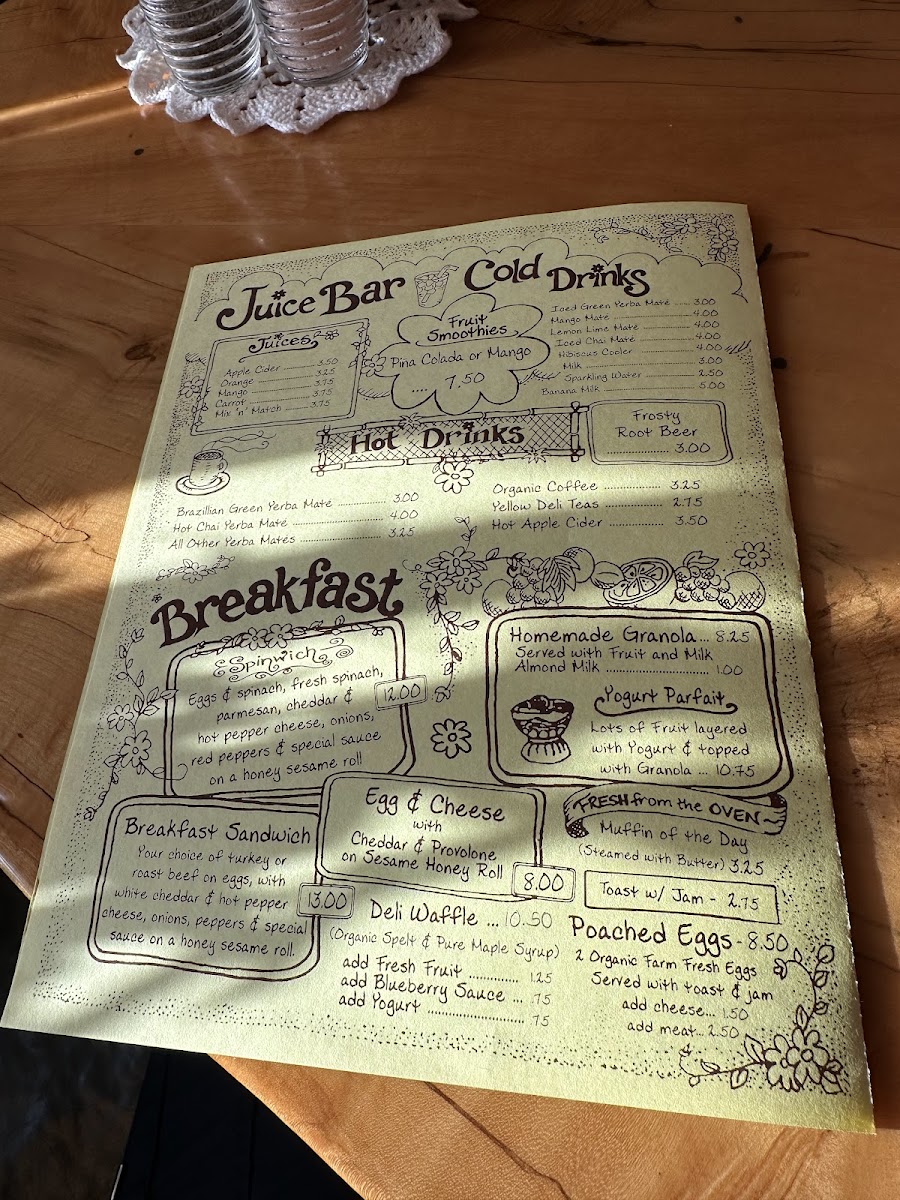 Juice Bar Cold Drinks
Juices
Apple Cider ........ 3.50
Orange ........ 3.25
Mango ........ 3.75
Carrot ........ 3.75
Mix 'n' Match ........ 3.75
Fruit
Smoothies
Pina Colada or Mango
.... 7.50
Iced Green Yerba Maté ..... 3.00
Mango Maté ........ 4.00
Lemon Lime Maté ........ 4.00
Iced Chai Maté ........ 4.00
Hibiscus Cooler ........ 4.00
Milk ........ 3.00
Sparkling Water ........ 2.50
Banana Milk ........ 5.00
Frosty
Root Beer
........ 3.00
Hot Drinks
Brazillian Green Yerba Maté ........ 3.00
Hot Chai Yerba Maté ........ 4.00
All Other Yerba Matés ........ 3.25
Organic Coffee ........ 3.25
Yellow Deli Teas ........ 2.75
Hot Apple Cider ........ 3.50
Breakfast
Spinwich
Eggs & spinach, fresh spinach,
parmesan, cheddar &
hot pepper cheese, onions,
red peppers & special sauce
on a honey sesame roll
12.00
Homemade Granola... 8.25
Served with Fruit and Milk
Almond Milk ........ 1.00
Yogurt Parfait
Lots of Fruit layered
with Yogurt & topped
with Granola ... 10.75
Breakfast Sandwich
Your choice of turkey or
roast beef on eggs, with
white cheddar & hot pepper
cheese, onions, peppers & special
sauce on a honey sesame roll.
13.00
Egg & Cheese
with
Cheddar & Provolone
on Sesame Honey Roll
8.00
FRESH from the OVEN
Muffin of the Day
(Steamed with Butter) 3.25
Toast w/ Jam - 2.75
Deli Waffle ... 10.50
(Organic Spelt & Pure Maple Syrup)
add Fresh Fruit ........ 1.25
add Blueberry Sauce ... .75
add Yogurt ........ .75
Poached Eggs - 8.50
2 Organic Farm Fresh Eggs
Served with toast & jam
add cheese... 1.50
add meat... 2.50